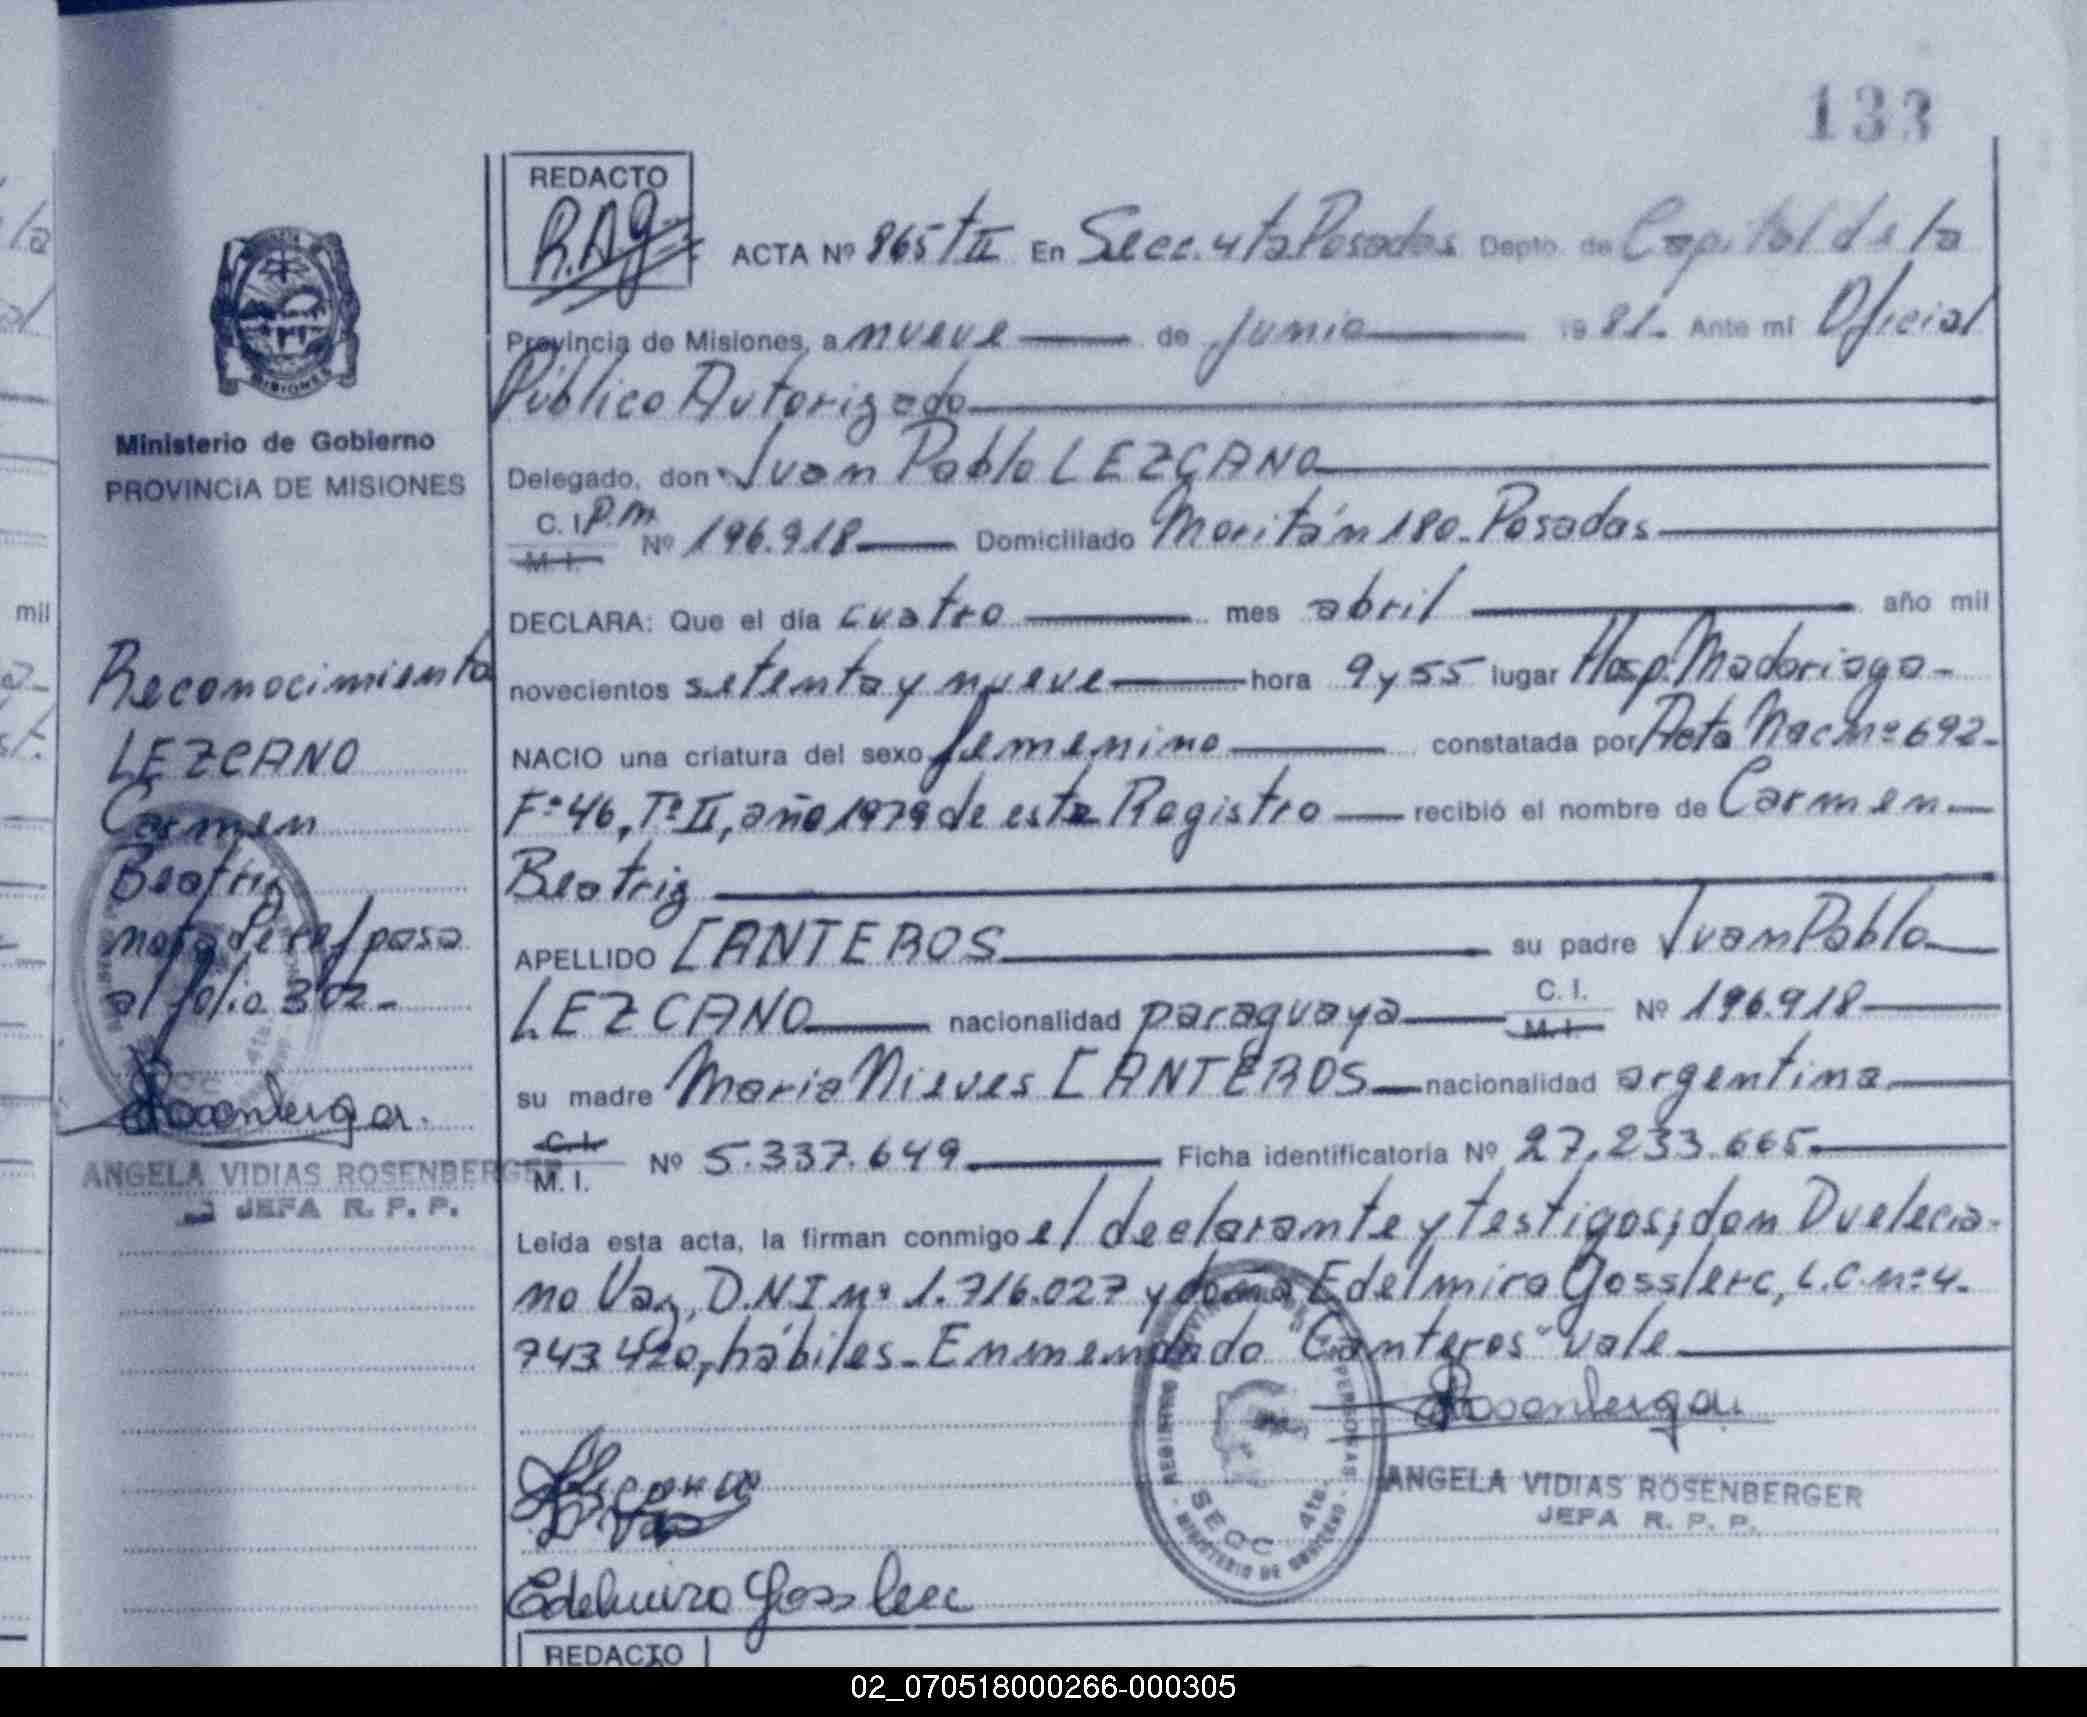 133
REDACTO
R.A.G
ACTA Nº 865 Tº II En Secc. 4ta Posadas Depto. de Capital de la
Provincia de Misiones, a nueve de junio 1981. Ante mí Oficial
Público Autorizado
Delegado, don Juan Pablo LEZCANO
C. I. P.M
M. I.
Nº 196.918 Domiciliado Moritán 180. Posadas
DECLARA: Que el día cuatro mes abril año mil
novecientos setenta y nueve hora 9 y 55 lugar Hosp. Madariaga-
NACIO una criatura del sexo femenino constatada por Acta Nac nº 692-
Fº 46, Tº II, año 1979 de este Registro recibió el nombre de Carmen
Beatriz
APELLIDO CANTEROS su padre Juan Pablo
LEZCANO nacionalidad paraguaya C. I. M. I. Nº 196.918
su madre Maria Nieves CANTEROS nacionalidad argentina
C. I. M. I. Nº 5.337.649 Ficha identificatoria Nº 27.233.665
Leída esta acta, la firman conmigo el declarante y testigos; don Duelecia-
no Vaz, D.N.I nº 1.716.027 y doña Edelmira Gosslerc, L.C. nº 4.
743 420, hábiles. Enmendado "Canteros" vale
Rosenberger
ANGELA VIDIAS ROSENBERGER
JEFA R. P. P.
REGISTRO PERSONAS
SECC 4ta.
MINISTERIO DE GOBIERNO
Lezcano
D. Vaz
Edelmira Gosslerc
REDACTO
MISIONES
Ministerio de Gobierno
PROVINCIA DE MISIONES
Reconocimiento
LEZCANO
Carmen
Beatriz
nota de ref pasa
al folio 302-
Rosenberger
ANGELA VIDIAS ROSENBERGER
JEFA R. P. P.
mil
02_070518000266-000305